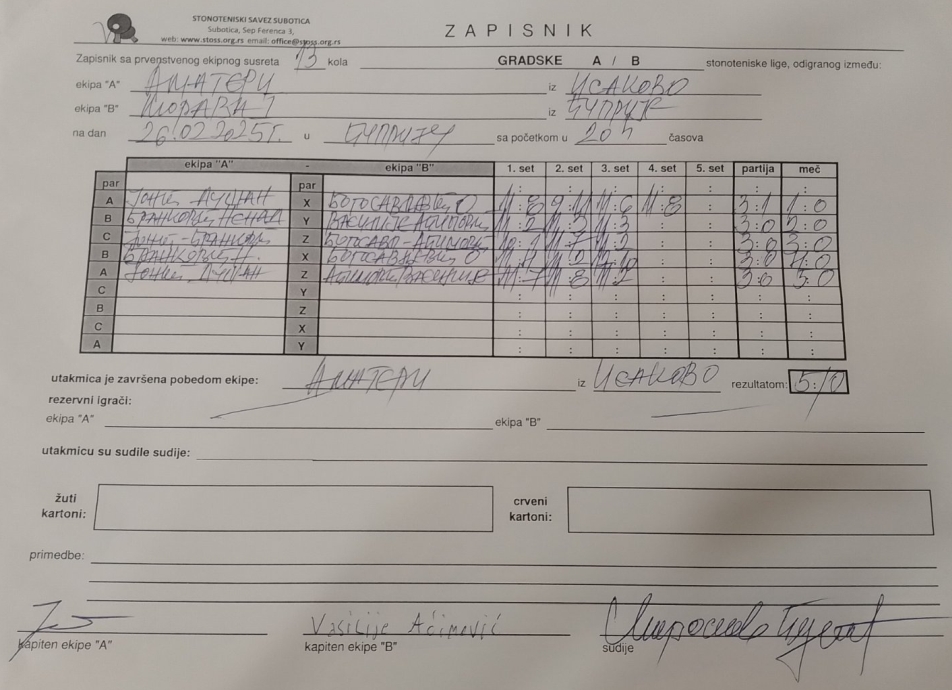 STONOTENISKI SAVEZ SUBOTICA
Subotica, Sep Ferenca 3,
web: www.stoss.org.rs email: office@stoss.org.rs
ZAPISNIK
Zapisnik sa prvenstvenog ekipnog susreta 13 kola GRADSKE A / B stonoteniske lige, odigranog između:
ekipa "A" АМАТЕРИ iz ИСАКОВО
ekipa "B" МОРАВА-1 iz ЋУПРИЈЕ
na dan 26.02.2025г. u ЋУПРИЈИ sa početkom u 20h časova
ekipa "A" - ekipa "B" 1. set 2. set 3. set 4. set 5. set partija meč
par par : : : : : : :
A ДУШАН X 11:8 9:11 11:6 11:8 : 3:1 1:0
B БРАНКОВИЋ НЕНАД Y 11:2 11:3 11:3 : : 3:0 2:0
C Z 11:2 : : 3:0 3:0
B БРАНКОВИЋ Н. X : : 3:0 4:0
A ДУШАН Z 11:7 11:8 11:2 : : 3:0 5:0
C Y : : : : : : :
B Z : : : : : : :
C X : : : : : : :
A Y : : : : : : :
utakmica je završena pobedom ekipe: АМАТЕРИ iz ИСАКОВО rezultatom: 5:0
rezervni igrači:
ekipa "A" ekipa "B"
utakmicu su sudile sudije:
žuti kartoni: crveni kartoni:
primedbe:
Vasilije Aćimović
kapiten ekipe "A" kapiten ekipe "B" sudije